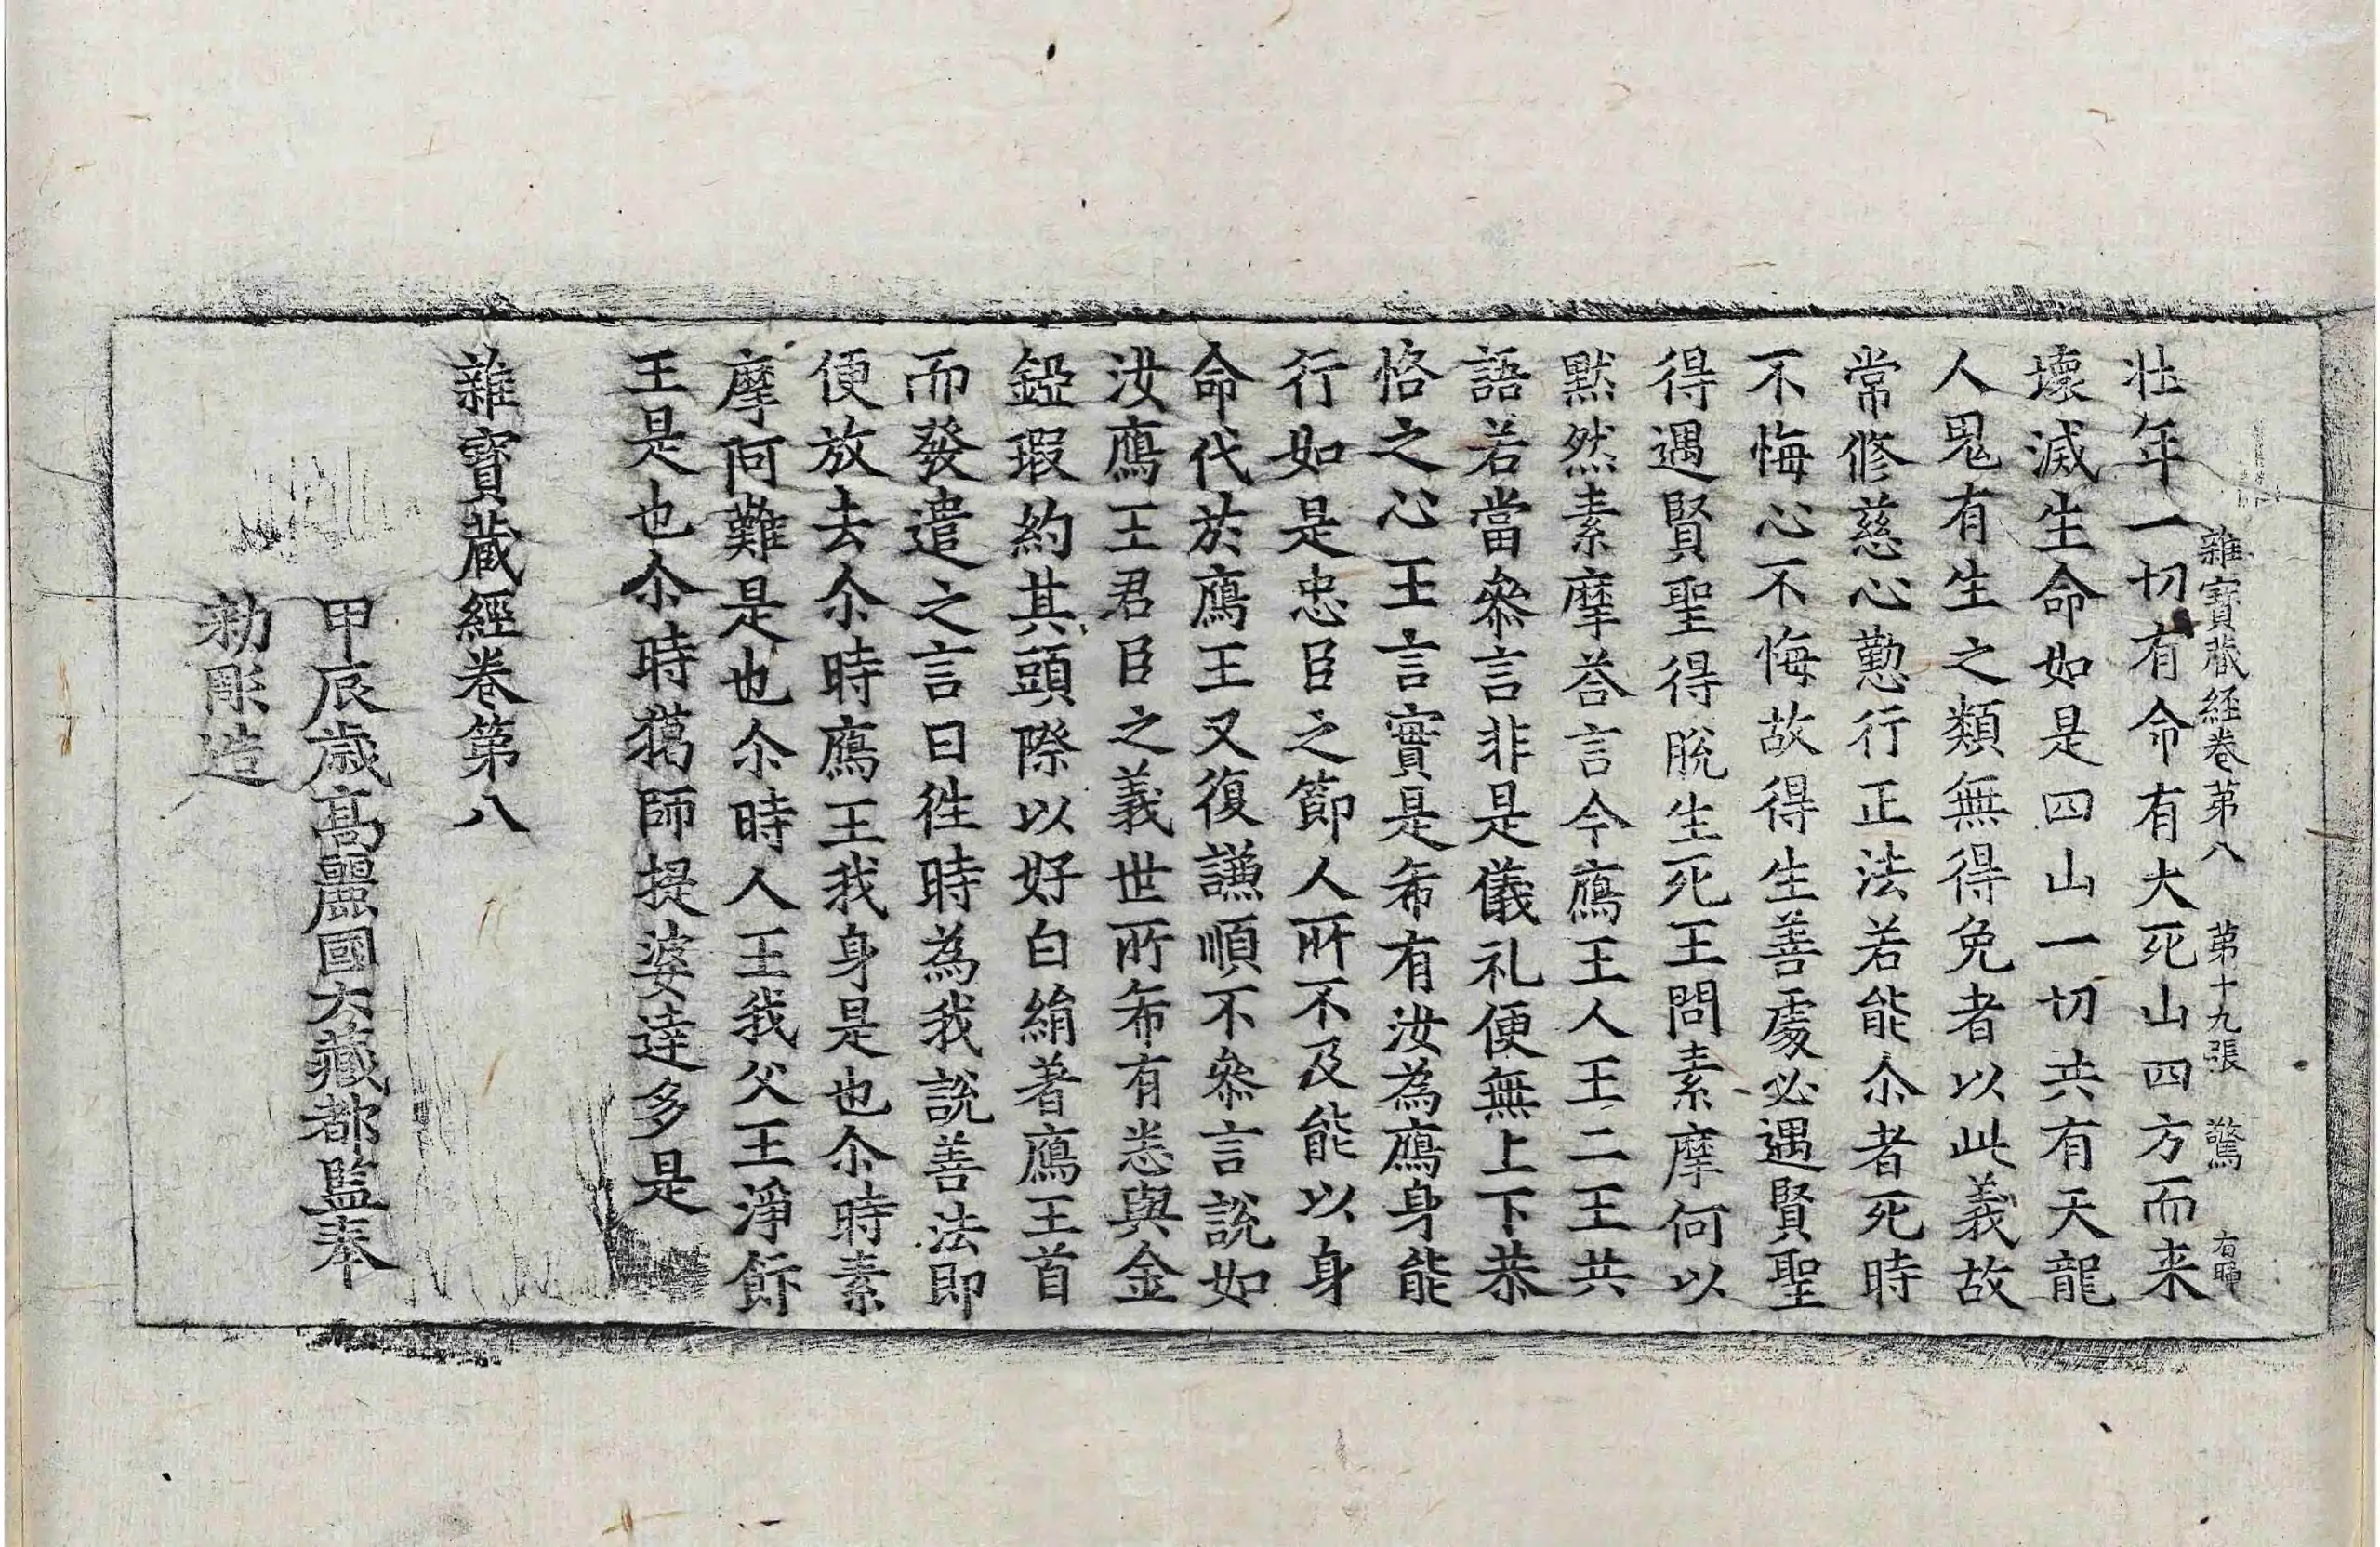 雜寶蔵経巻第八 第十九張 驚
壮年一切有命有大死山四方而来
壞滅生命如是四山一切共有天龍
人鬼有生之類無得免者以此義故
常修慈心勤行正法若能尒者死時
不悔心不悔故得生善處必遇賢聖
得遇賢聖得脫生死王問素摩何以
黙然素摩荅言今鴈王人王二王共
語若當叅言非是儀礼便無上下恭
恪之心王言實是希有汝為鴈身能
行如是忠臣之節人所不及能以身
命代於鴈王又復謙順不叅言說如
汝鴈王君臣之義世所希有悉與金
錏瑕約其頭際以好白絹著鴈王首
而發遣之言曰徃時為我說善法即
便放去尒時鴈王我身是也尒時素
摩阿難是也尒時人王我父王淨飰
王是也尒時獦師提婆達多是
雜寳蔵經巻第八
甲辰歳髙麗國大藏都監奉
勅彫造